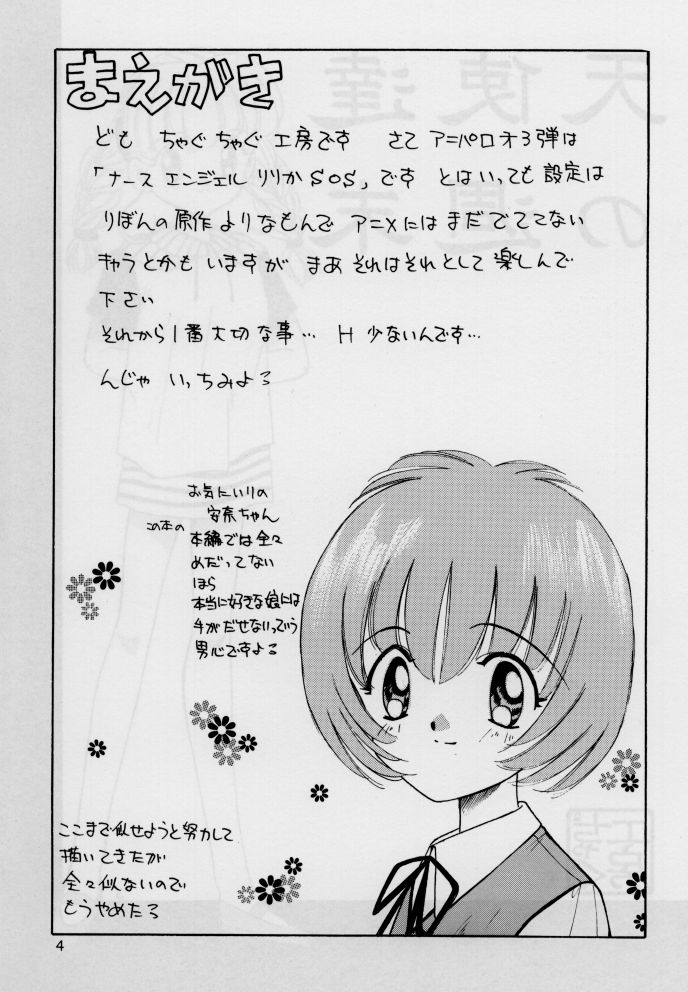 まえがき
ども ちゃぐちゃぐ工房です さて アニパロオ3弾は
「ナースエンジェルりりかSOS」です とはいっても設定は
りぼんの原作よりなもんで アニメにはまだでててない
キャラとかもいますが まあそれはそれとして楽しんで
下さい
それから1番大切な事… H 少ないんです…
んじゃ いっちみよる
お気にいりの
安奈ちゃん
この本の
本編では全々
めだってない
ほら
本当に好きな娘には
手がだせないっていう
男心ですよる
ここまで似せようと努力して
描いてきたが
全々似ないので
もうやめたる
4
天使達
の週末